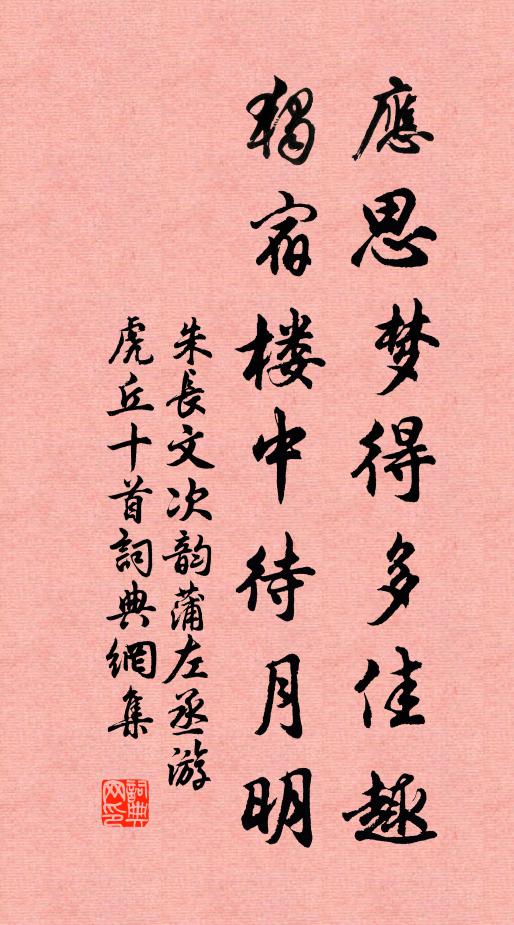 應思梦得多佳趣
獨宿楼中待月明
朱長文次韵蒲左丞游
虎丘十首詞典網集
詞典网印